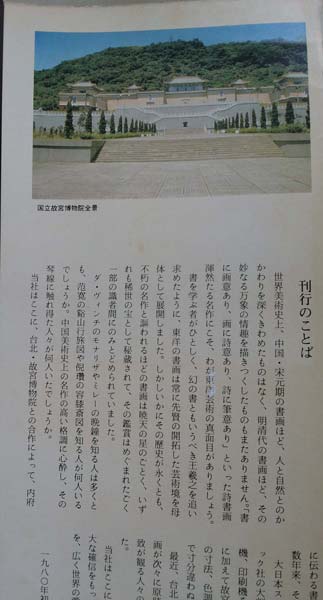 国立故宮博物院全景
刊行のことば
世界美術史上、中国・宋元期の書画ほど、人と自然とのか
かわりを深くきわめたものはなく、明清代の書画ほど、その
妙なる万象の情趣を描きつくしたものもまたありません。「書
に画意あり、画に詩意あり、詩に筆意あり」といった詩書画
渾然たる名作にこそ、わが東洋芸術の真面目がありましょう。
書を学ぶ者がひとしく、幻の書ともいうべき王羲之を追い
求めたように、東洋の書画は常に先賢の開拓した芸術境を母
体として展開しました。しかしいかにその歴史が永くとも、
不朽の名作と謳われるほどの書画は暁天の星のごとく、いず
れも稀世の宝として秘蔵されて、その鑑賞はめぐまれたごく
一部の識者間にのみとどめられていました。
ダ・ヴィンチのモナリザやミレーの晩鐘を知る人は多くと
も、范寛の谿山行旅図や倪瓚の容膝斎図を知る人が何人いる
でしょうか。中国美術史上の名作の高い格調に心酔し、その
琴線に触れ得た人々が何人いたでしょう。
当社はここに、台北・故宮博物院との合作によって、内府
に伝わる書
数年来、そ
大日本ス
ック社の大
機、印刷機
に加えて故宮
の寸法、色調
で寸分違わぬ
最近、台北
画が次々に原寸
致が観る人々
た。
当社はここに
大な確信をもっ
を、広く世界の
一九八〇年初